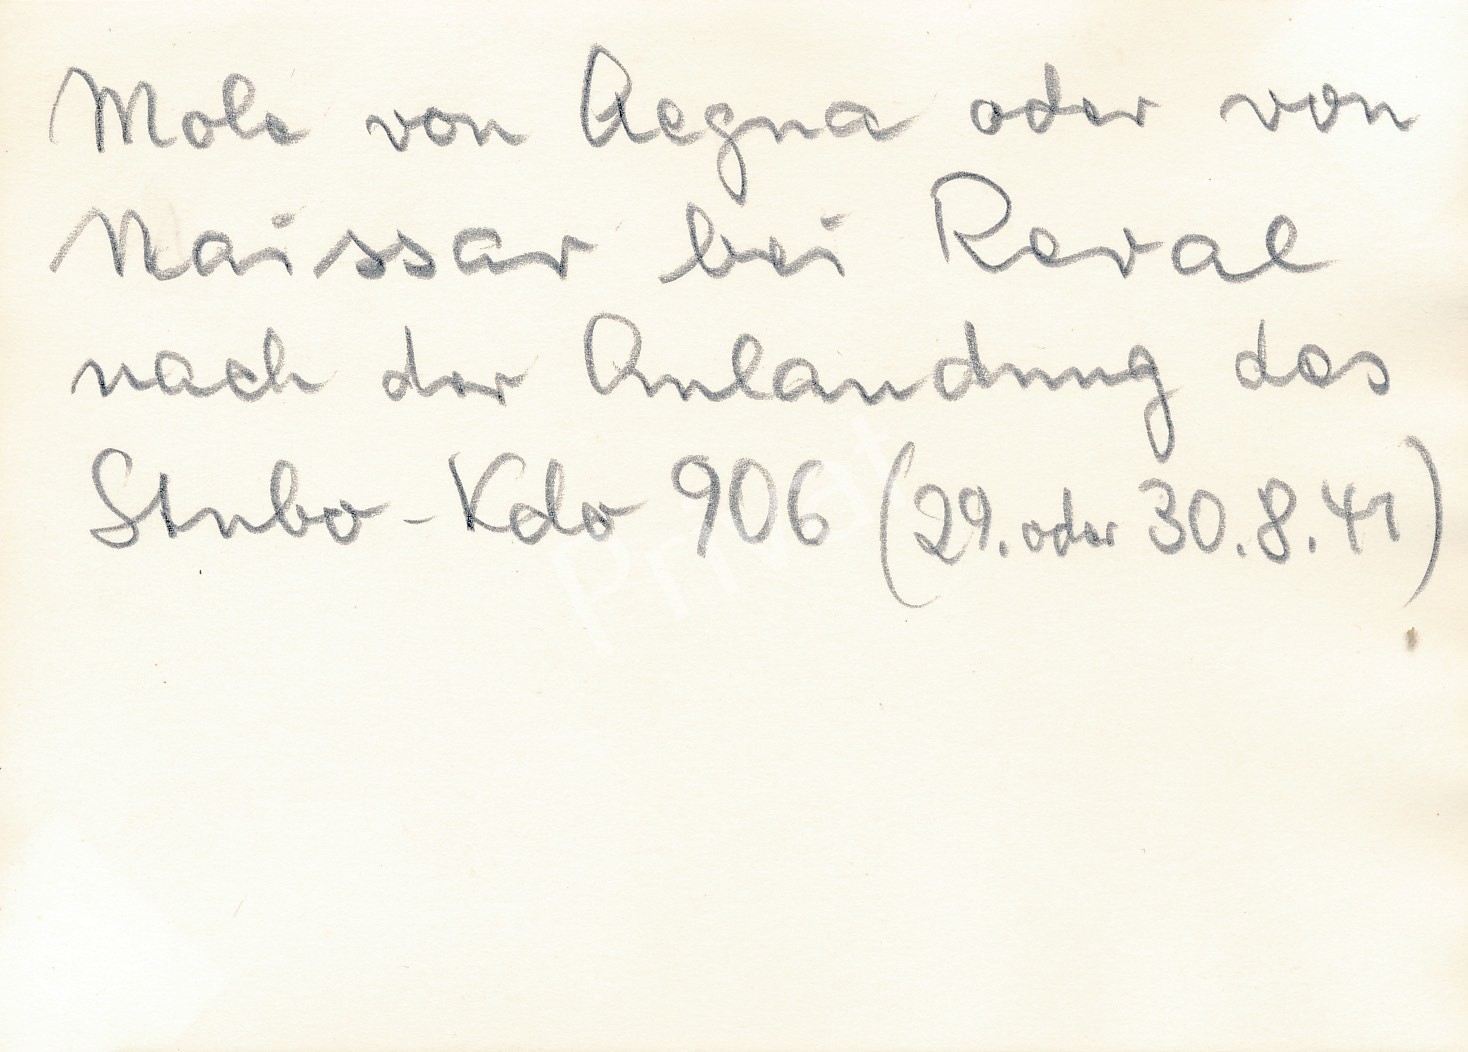 Mole von Aegna oder von
Naissar bei Reval
nach der Anlandung des
Stubo-Kdo 906 (29. oder 30.8.41)
Privat